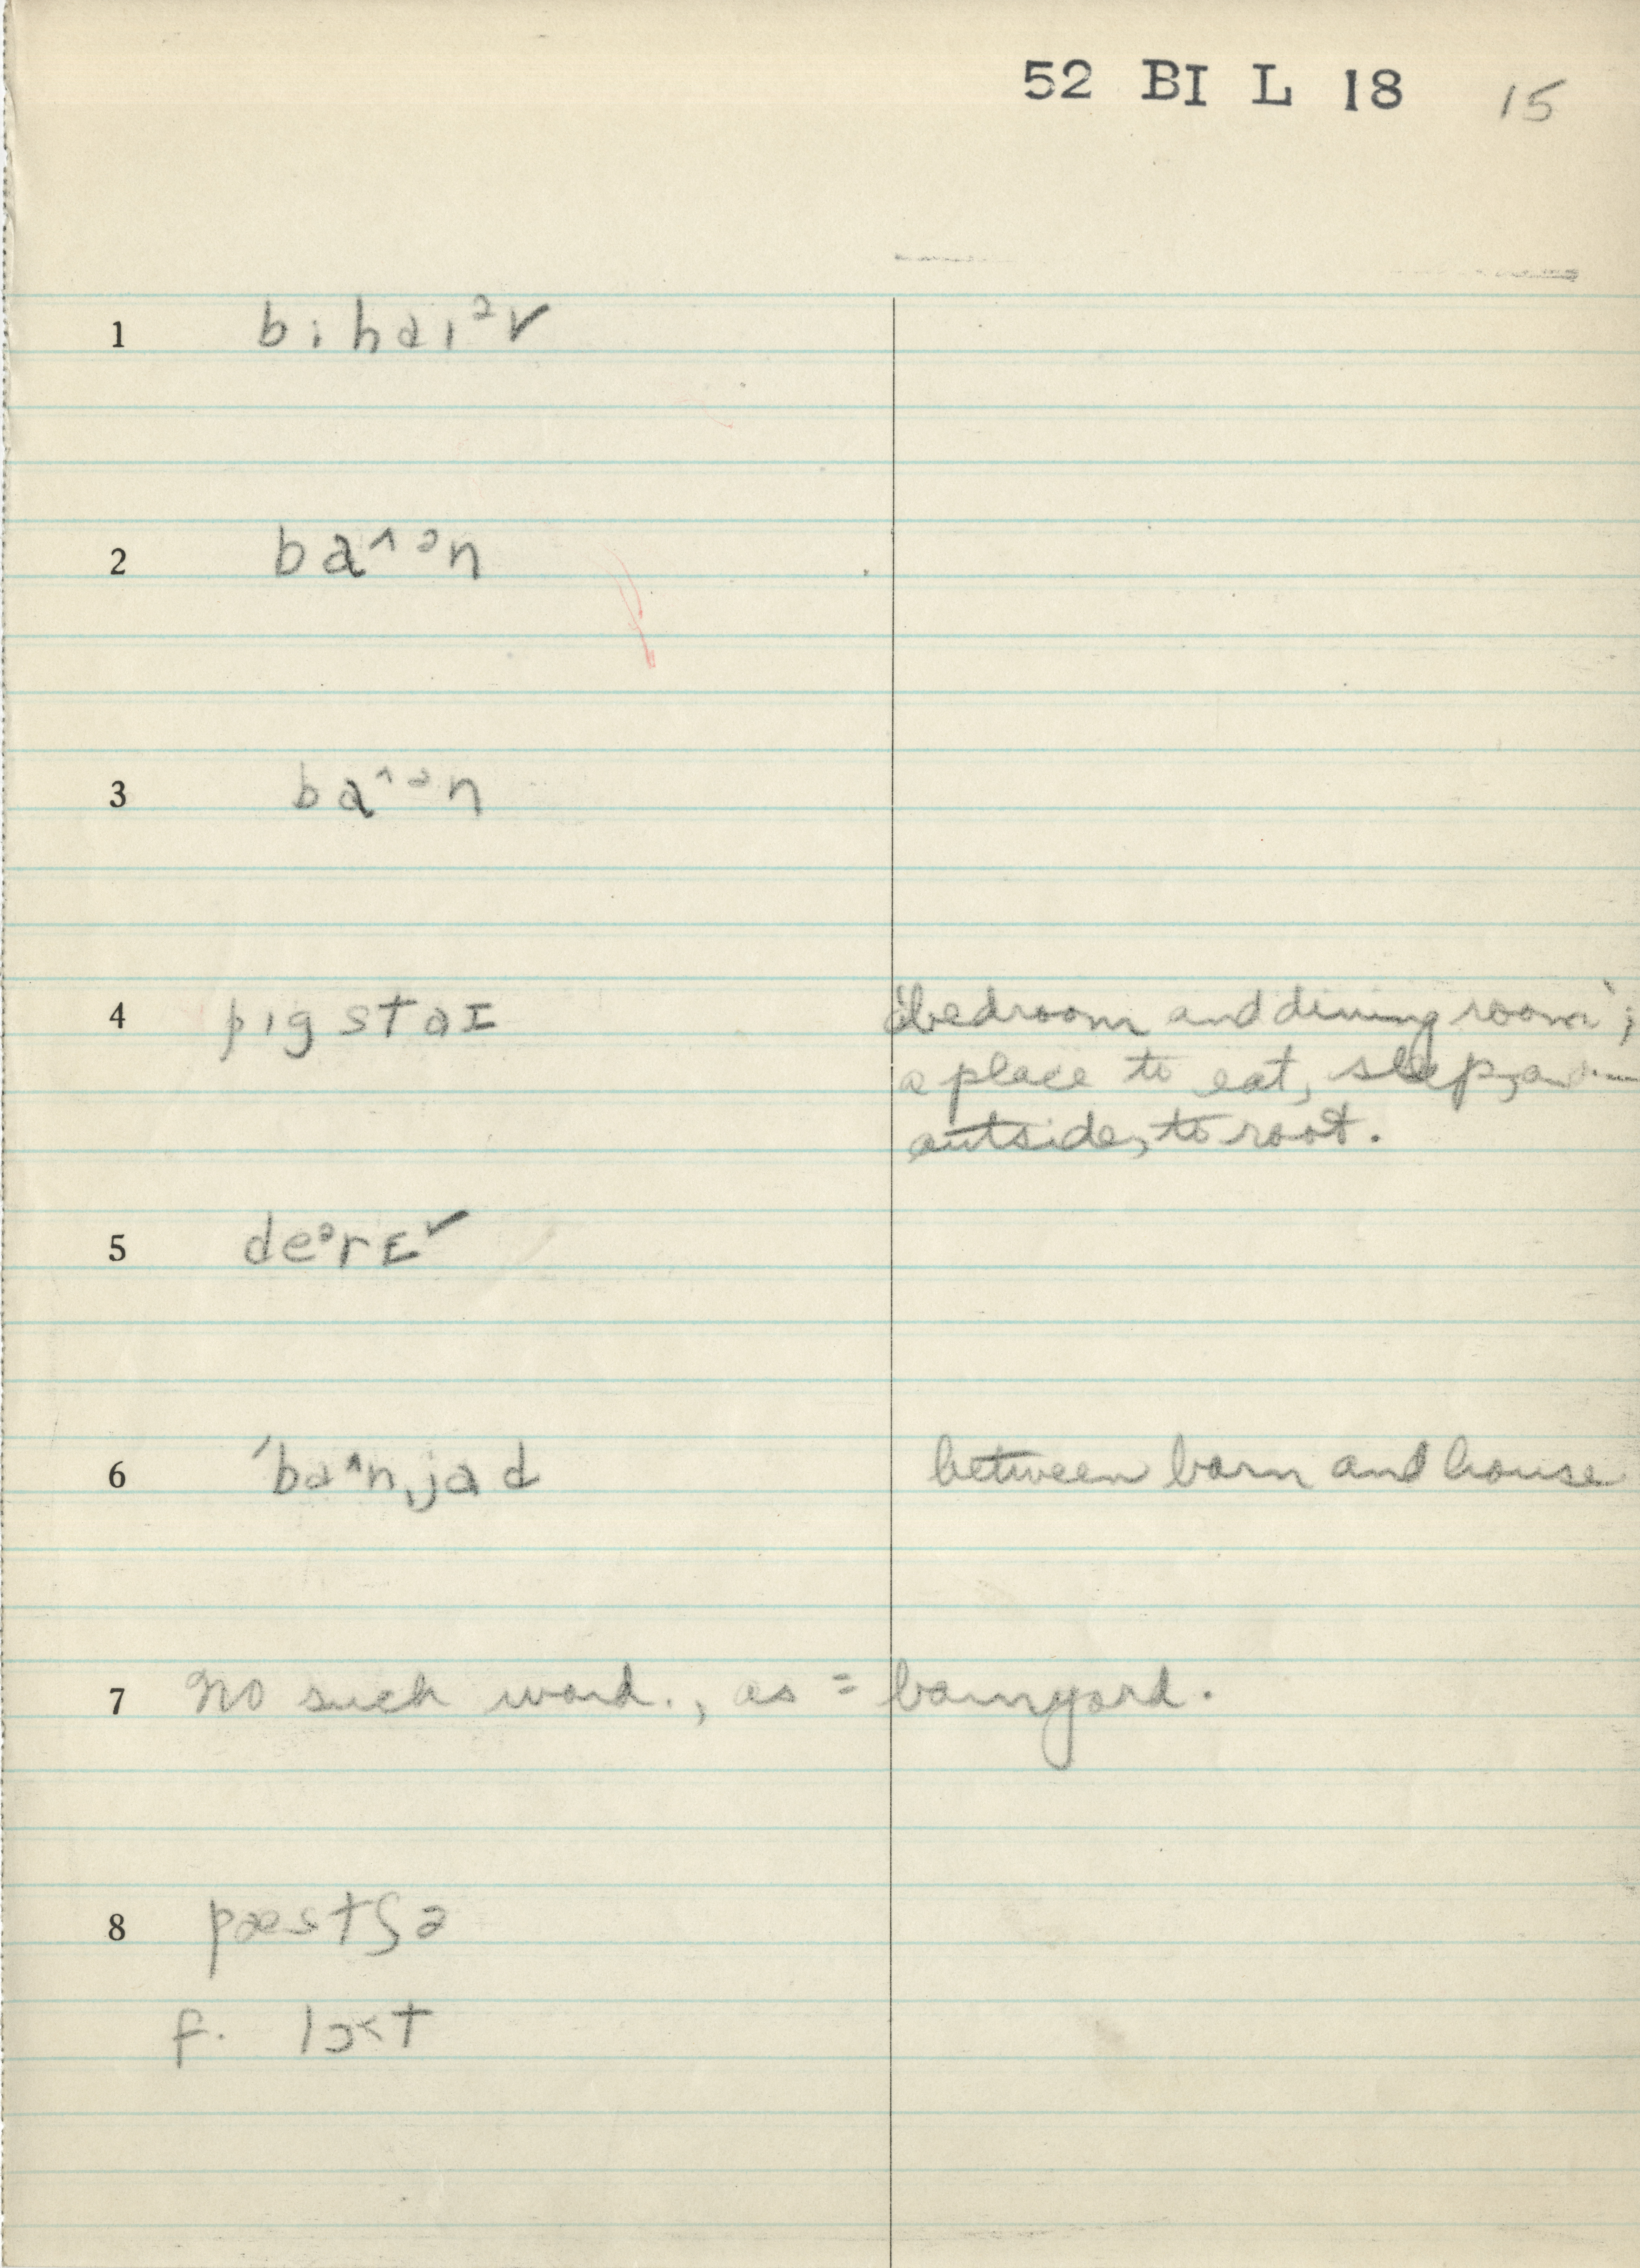 52 BI L 18 15
1 bihaɪᵊ✓
2 ba^ᵊn
3 ba^ᵊn
4 pɪg staɪ "bedroom and dining room";
a place to eat, sleep,
outside, to root.
5 deᵊrɛ✓
6 ˈba^nˌjad between barn and house
7 No such word., as = barnyard.
8 pæstʃə
f. lɔ<t